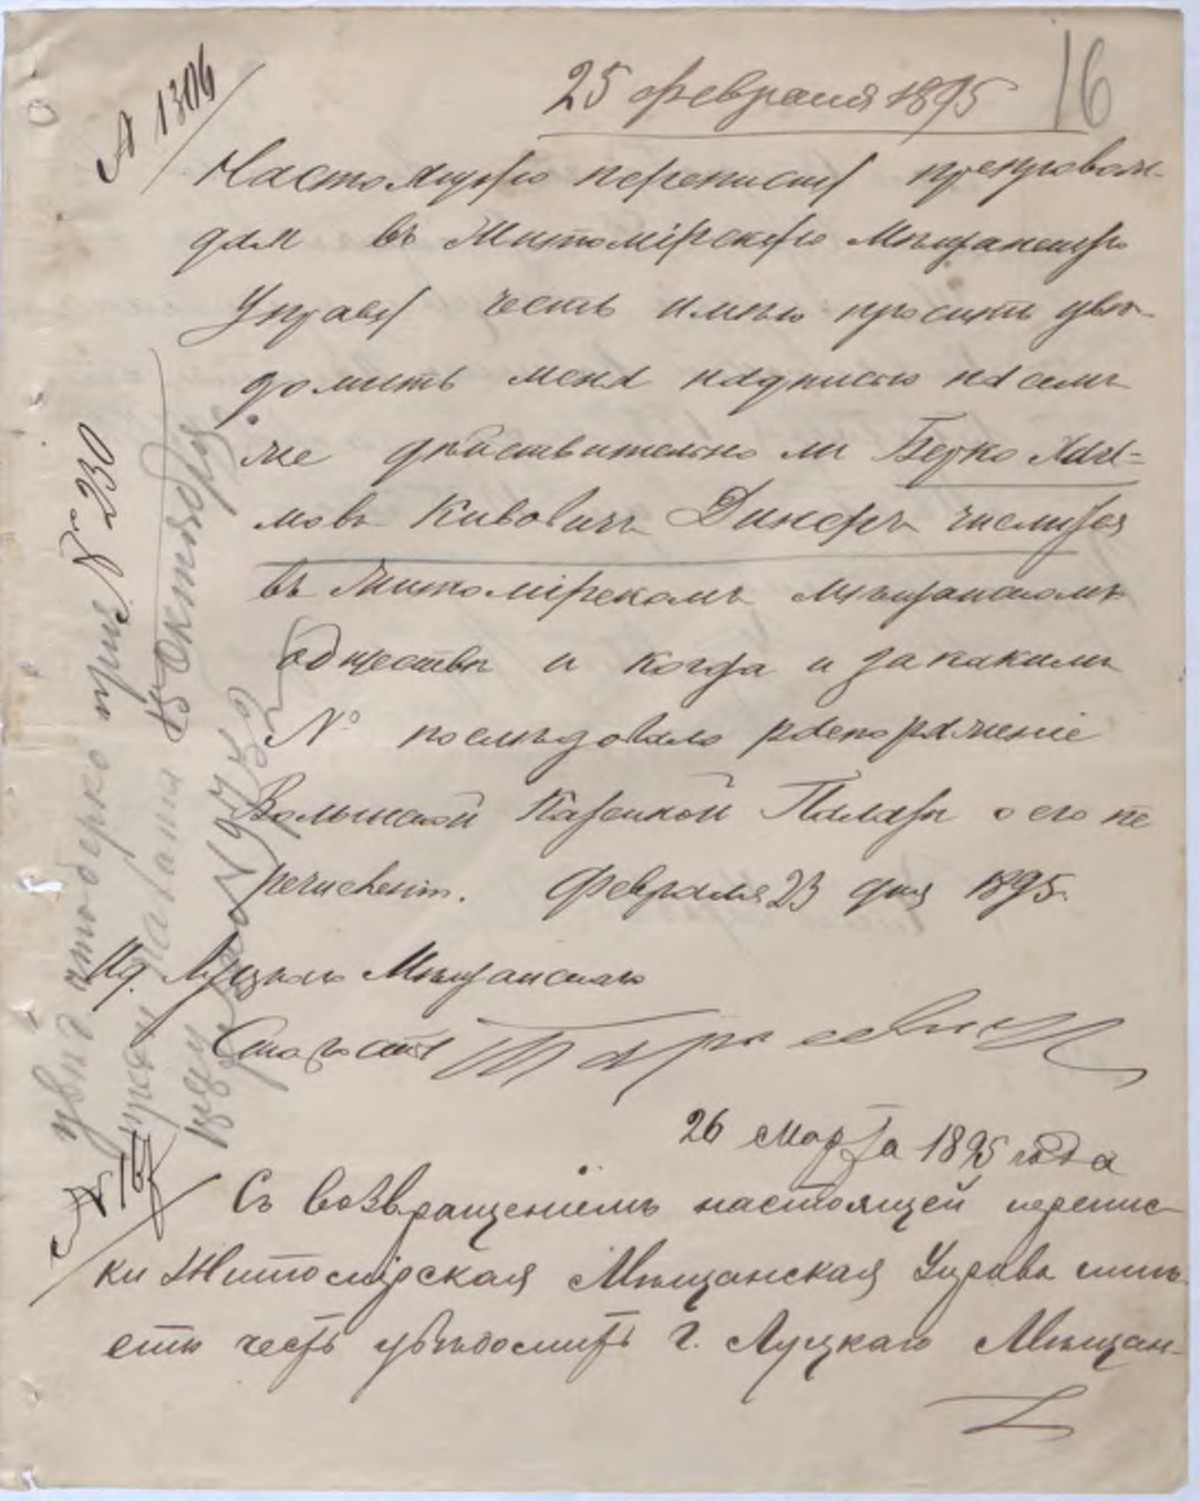 № 1306
25 февраля 1895
16
Настоящую переписку препровож-
дая въ Житомірскую Мѣщанскую
Управу честь имѣю просить увѣ-
домить меня надписью на семъ
же дѣйствительно ли Берко Хаи-
мовъ Кивовичъ Динеръ числится
въ Житомірскомъ мѣщанскомъ
обществѣ и когда и за какимъ
№ послѣдовало распоряженіе
Волынской Казенной Палаты о его пе
речисленіи. Февраля 23 дня 1895.
Ид. Луцкаго Мѣщанскаго
Старосты Тарасевичъ
26 Марта 1895 года
№ 167
Съ возвращеніемъ настоящей перепис-
ки Житомірская Мѣщанская Управа имѣ-
етъ честь увѣдомить г. Луцкаго Мѣщан-
увѣд что Берко прич № 230
15 Октября
№ 9752